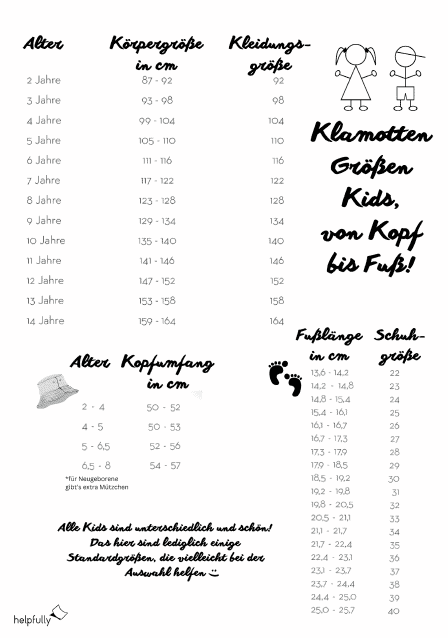 Alter Körpergröße in cm Kleidungs-größe
2 Jahre 87 - 92 92
3 Jahre 93 - 98 98
4 Jahre 99 - 104 104
5 Jahre 105 - 110 110
6 Jahre 111 - 116 116
7 Jahre 117 - 122 122
8 Jahre 123 - 128 128
9 Jahre 129 - 134 134
10 Jahre 135 - 140 140
11 Jahre 141 - 146 146
12 Jahre 147 - 152 152
13 Jahre 153 - 158 158
14 Jahre 159 - 164 164
Klamotten
Größen
Kids,
von Kopf
bis Fuß!
Alter Kopfumfang in cm
2 - 4 50 - 52
4 - 5 50 - 53
5 - 6,5 52 - 56
6,5 - 8 54 - 57
*für Neugeborene
gibt's extra Mützchen
Fußlänge in cm Schuh-größe
13,6 - 14,2 22
14,2 - 14,8 23
14,8 - 15,4 24
15,4 - 16,1 25
16,1 - 16,7 26
16,7 - 17,3 27
17,3 - 17,9 28
17,9 - 18,5 29
18,5 - 19,2 30
19,2 - 19,8 31
19,8 - 20,5 32
20,5 - 21,1 33
21,1 - 21,7 34
21,7 - 22,4 35
22,4 - 23,1 36
23,1 - 23,7 37
23,7 - 24,4 38
24,4 - 25,0 39
25,0 - 25,7 40
Alle Kids sind unterschiedlich und schön!
Das hier sind lediglich einige
Standardgrößen, die vielleicht bei der
Auswahl helfen :)
helpfully